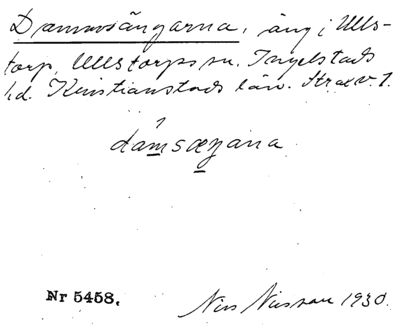 Dammsängarna, äng i Ulls-
torp, Ullstorps sn. Ingelstads
hd. Kristianstads län. Strax v. 1.
dám̲sæŋ̲ana
Nr 5458.
Nils Nilsson 1930.